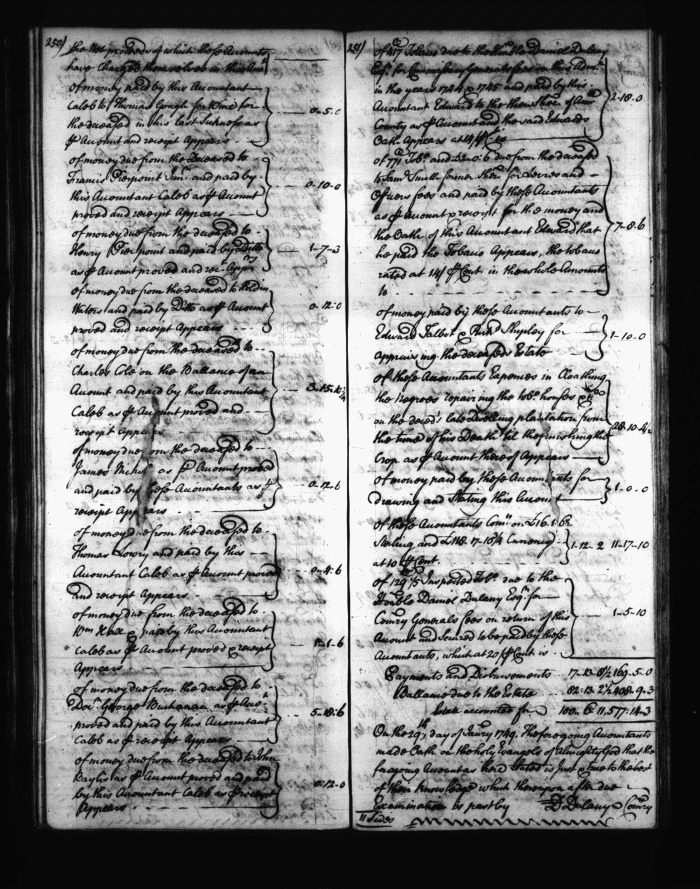 250)
the Net proceeds of which these Accountants
have Charged themselves in this Acct
of money paid by this Accountant
Caleb to Thomas Gough for Wine for
the deceased in his last Sickness as
℔ Account and receipt Appears
0-5-0
of money due from the deceased to
Francis Pierpoint and paid by
this Accountant Caleb as ℔ Account
proved and receipt Appears
0-10-0
of money due from the deceased to
Henry Pierpoint and paid by Ditto
as ℔ Account proved and rec. Apprs
1-7-3
of money due from the deceased to
Waters and paid by Ditto as ℔ Account
proved and receipt Appears
0-12-0
of money due from the deceased to
Charles Cole on the Ballance of an
Account and paid by this Accountant
Caleb as ℔ Account proved and
receipt Appears
of money due from the deceased to
James as ℔ Account proved
and paid by these Accountants as ℔
receipt Appears
0-12-6
of money due from the deceased to
Thomas Lowry and paid by this
Accountant Caleb as ℔ Account proved
and receipt Appears
0-4-6
of money due from the deceased to
paid by this Accountant
Caleb as ℔ Account proved & receipt
Appears
1-1-6
of money due from the deceased to
Doctr George Buchanan as ℔ Acct
proved and paid by this Accountant
Caleb as ℔ receipt Appears
5-18-6
of money due from the deceased to John
Baylis as ℔ Account proved and paid
by this Accountant Caleb as ℔ receipt
Appears
12-0
251)
of 417 Tobacco due to the Honble Daniel Dulany
Esqr for Commissary Generals fees on this Admn
in the years 1744 & 1745 and paid by this
Accountant Edward to the then Sherr of Ann Al
County as ℔ Account and the said Edwards
Oath Appears at 14/ ℔ Ct is
2-18-0
of 771 Tobo and due from the deceased
to Saml Smith former Sherr for Levies and
Officers fees and paid by these Accountants
as ℔ Account & receipt for the money and
the Oath of this Accountant Edward that
he paid the Tobacco Appears, the tobacco
rated at 14/ ℔ Cent in the whole Amounts
to
7-8-6
of money paid by these Accountants to
Edward Talbot & Richd Shipley for
Appraising the deceaseds Estate
1-10-0
of these Accountants Expences in Cloathing
the Negroes repairing the tobo houses &c
on the deceds late Dwelling plantation from
the time of his Death 'til the finishing the
Crop as ℔ Account thereof Appears
28-10-4½
of money paid by these Accountants for
drawing and Stating this Account
1-0-0
of these Accountants Comn on £16.1.6½
Sterling and £118.17.10¼ Currency
at 10 ℔ Cent.
1-12-2 11-17-10
of 129⅕ Inspected Tobo due to the
Honble Daniel Dulany Esqr for
Comry Generals fees on return of this
Account and Secured to be paid by these
Accountants, which at 20/ ℔ Cent is
1-5-10
Payments and Disbursements 17-13-8½ 169-5-0
Ballance due to the Estate 82-13-2½ 408-9-3
Estate accounted for 100-6-11 577-14-3
On the 29th day of Janry 1749. The foregoing Accountants
made Oath on the holy Evangels of Almighty God that the
foregoing Account as there Stated is just & true to the best
of their Knowledge which thereupon after due
Examination is past by D Dulany Comry
11 Sides